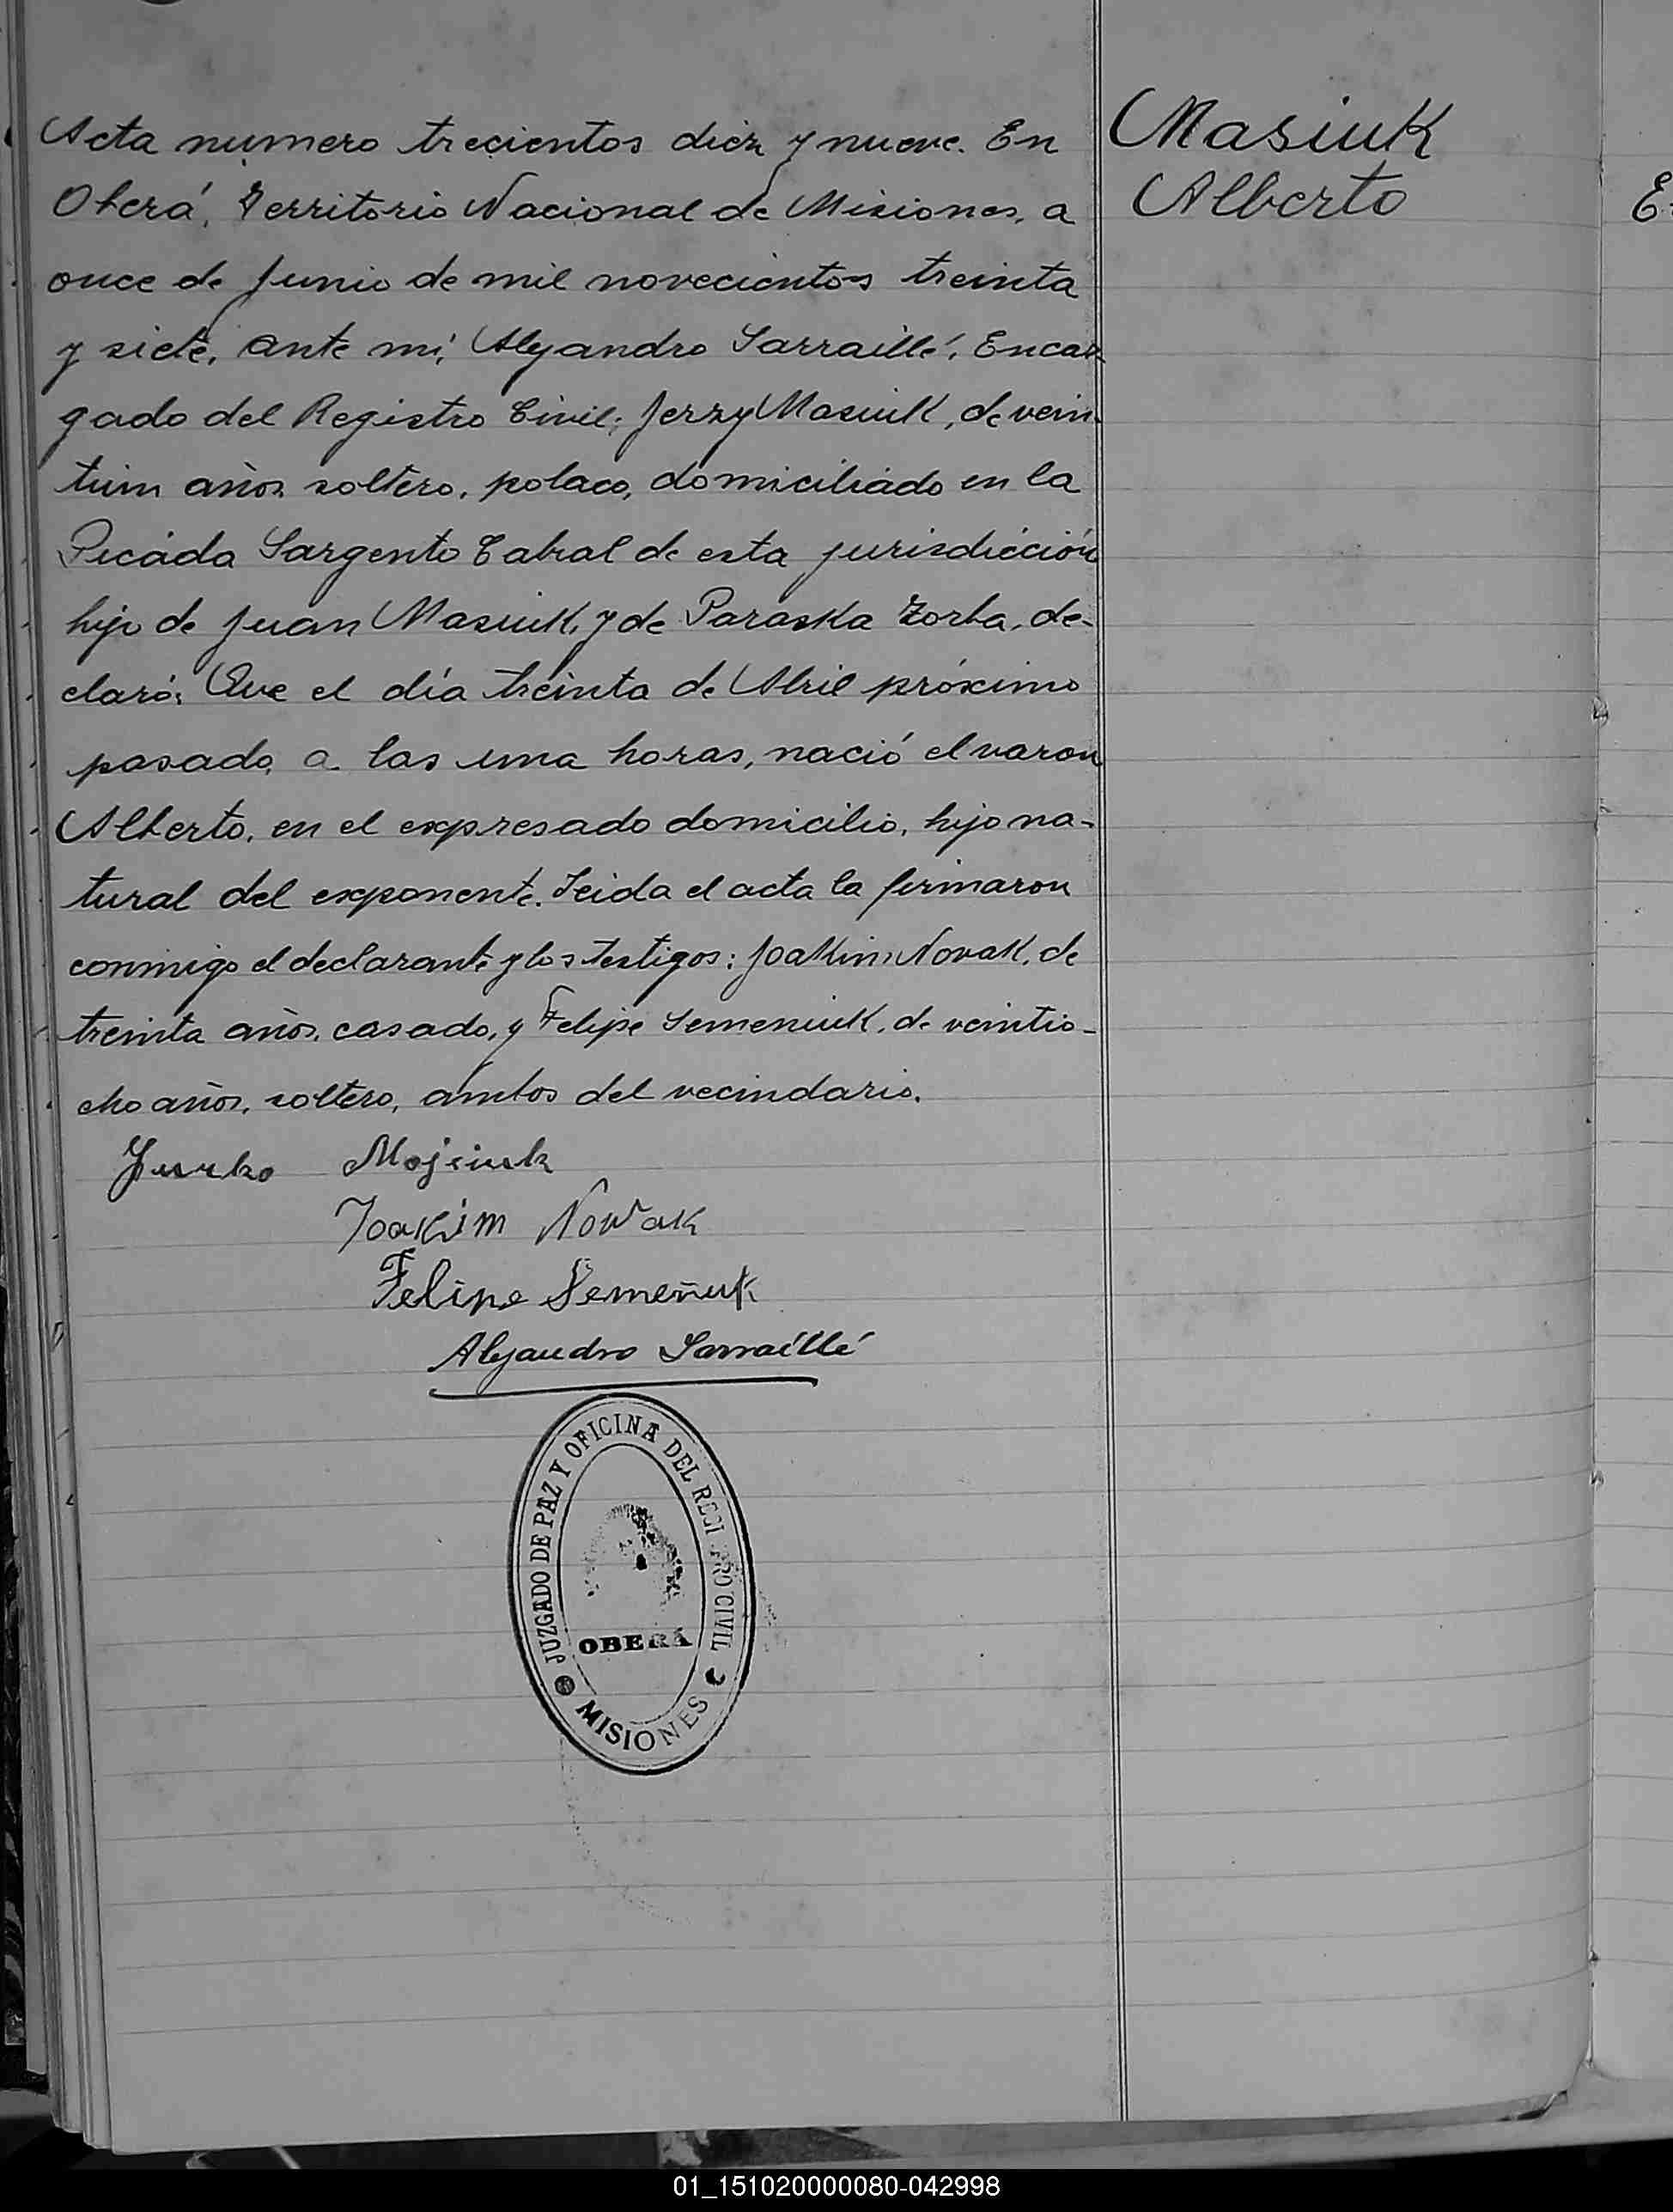 Acta numero trecientos diez y nueve. En
Oberá, Territorio Nacional de Misiones, a
once de Junio de mil novecientos treinta
y siete, ante mí, Alejandro Sarraillé, Encar
gado del Registro Civil; Jerzy Masiuk, de vein-
tiun años, soltero, polaco, domiciliado en la
Picada Sargento Cabral de esta jurisdicción
hijo de Juan Masiuk, y de Paraska Zorba, de-
claró: Que el día treinta de Abril próximo
pasado, a las una horas, nació el varon
Alberto, en el expresado domicilio, hijo na-
tural del exponente. Leida el acta la firmaron
conmigo el declarante y los testigos: Joakin Novak, de
treinta años, casado, y Felipe Semeniuk, de veintio-
cho años, soltero, ambos del vecindario.
Masiuk
Alberto
Jurko Mojsiuk
Joakim Nowak
Felipe Semeñuk
Alejandro Sarraillé
JUZGADO DE PAZ Y OFICINA DEL REGISTRO CIVIL
OBERÁ
MISIONES
E
01_151020000080-042998